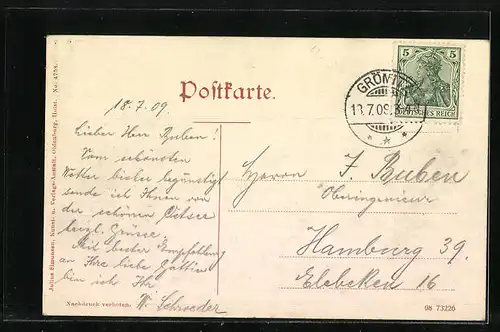 Postkarte.
18.7.09.
Lieber Herr Ruben!
Vom schönsten
Wetter bisher begünstigt
sende ich Ihnen von
der schönen Ostsee
herzl. Grüsse.
Mit bester Empfehlung
an Ihre liebe Gattin
bin ich Ihr
W. Schroeder
Nachdruck verboten.
Julius Simonsen, Kunst- u. Verlags-Anstalt, Oldenburg, Holst. No. 4784.
5 5
DEUTSCHES REICH
GRÖMITZ
18.7.09.
Herrn J. Ruben
Oberingenieur
Hamburg 39.
Elebeken 16
08 73226